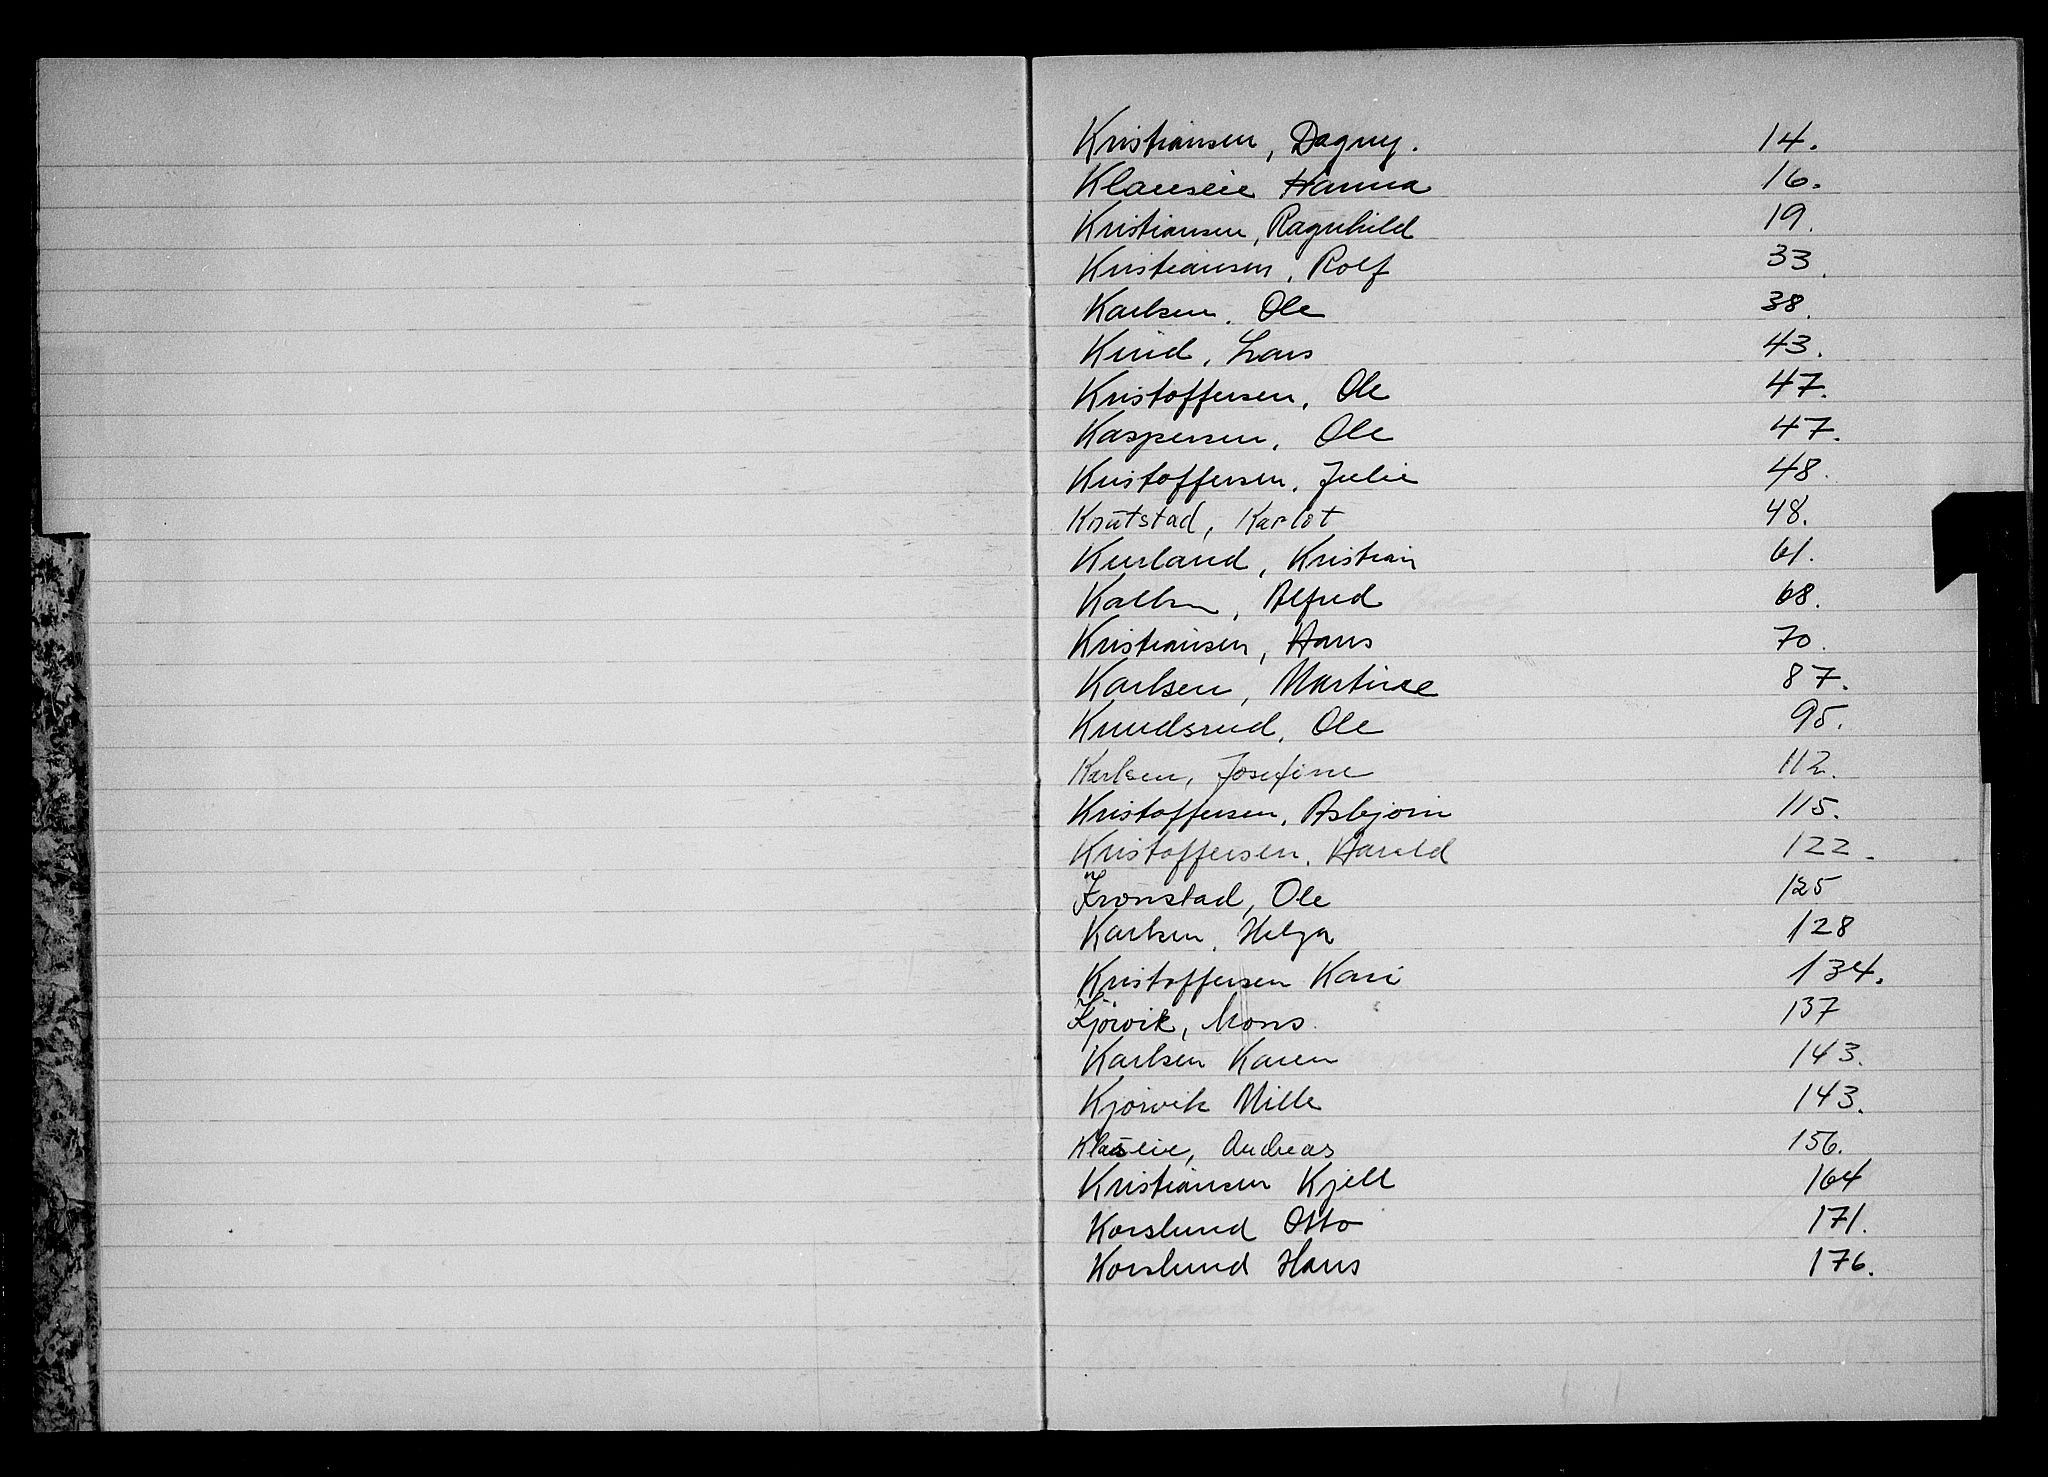 Kristiansen, Dagny. 14.
Klauseie Hanna 16.
Kristiansen, Ragnhild 19.
Kristiansen, Rolf 33.
Karlsen, Ole 38.
Kind, Lars 43.
Kristoffersen, Ole 47.
Kaspersen, Ole 47.
Kristoffersen, Julie 48.
Knutstad, Karlot 48.
Kurland, Kristian 61.
Alfred 68.
Kristiansen, Hans 70.
Karlsen, Martine 87.
Knudsrud, Ole 95.
Karlsen, Josefine 112.
Kristoffersen, Asbjørn 115.
Kristoffersen, Harald 122.
Kronstad, Ole 125
Karlsen, Helga 128
Kristoffersen Kari 134.
Kjørvik, Mons. 137
Karlsen Karen 143.
Kjørvik Mille 143.
Klauseie, Andreas 156.
Kristiansen Kjell 164
Korslund Otto 171.
Korslund Hans 176.